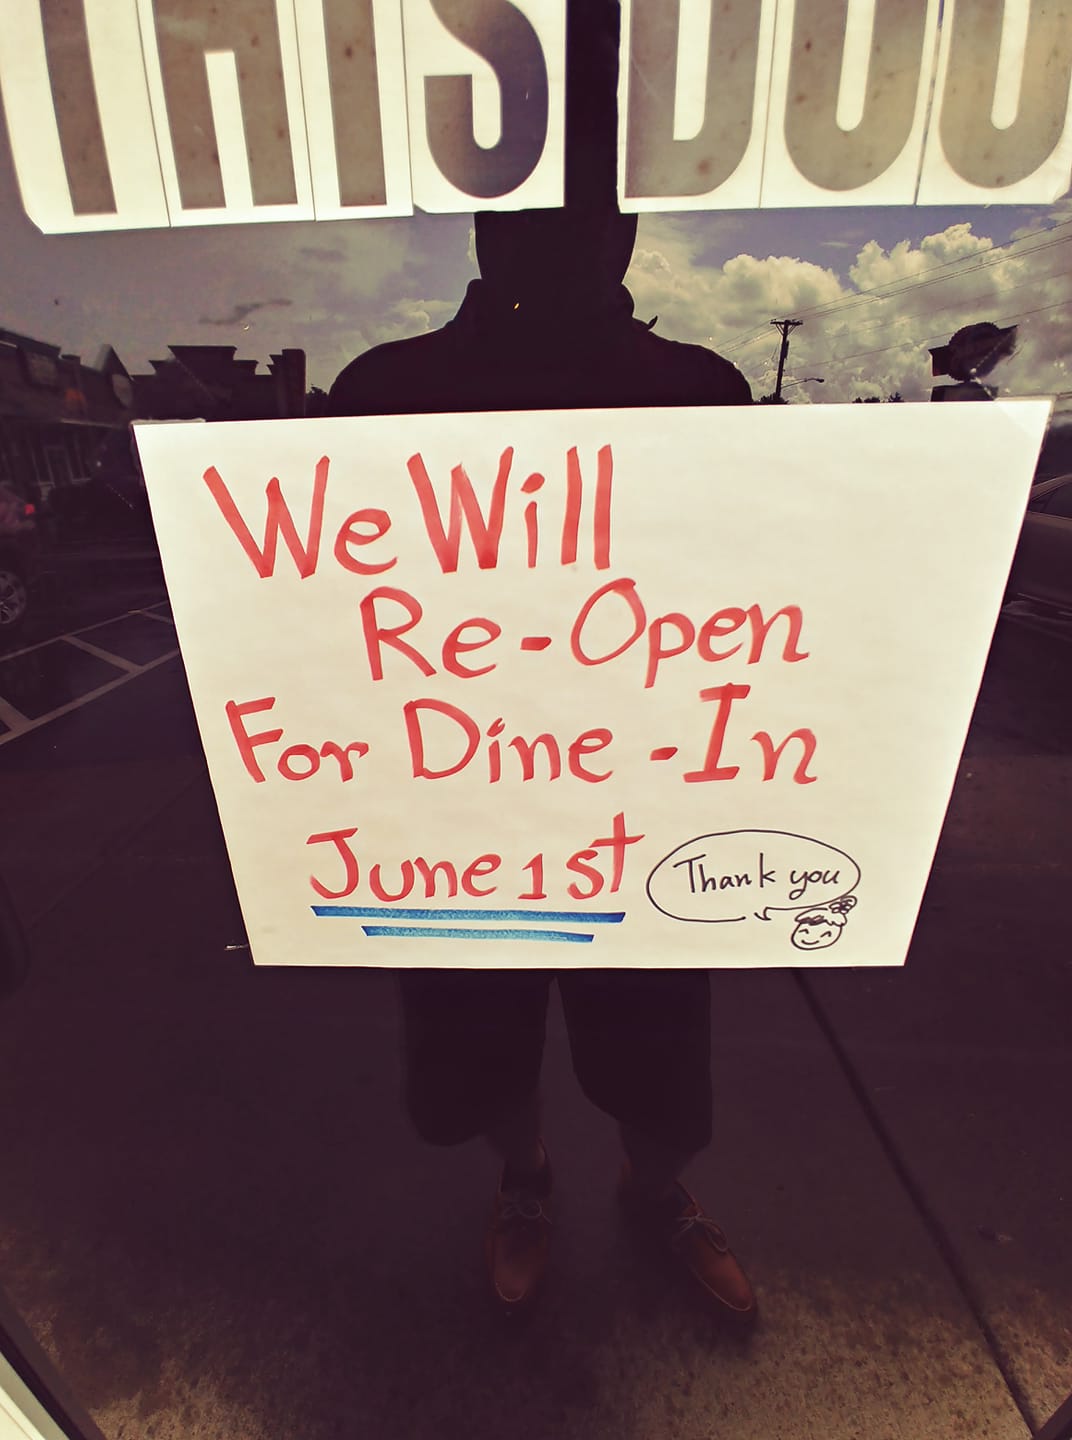 THIS DOO
We Will
Re-Open
For Dine-In
June 1st
Thank you